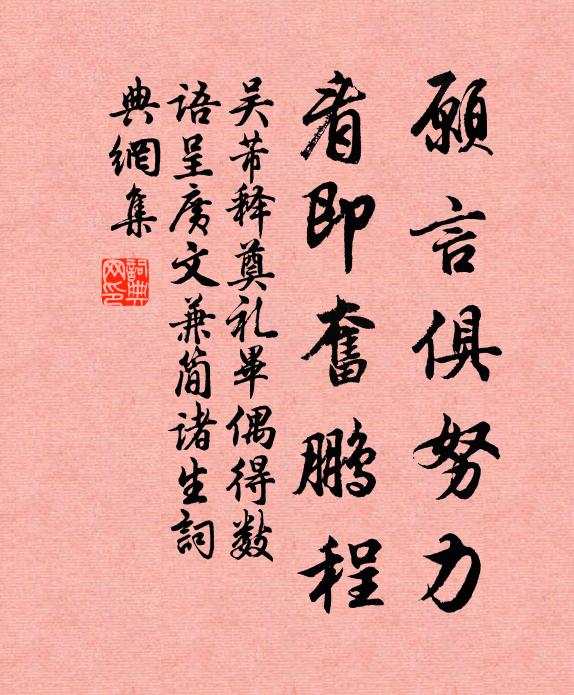 願言俱努力
看即奮鵬程
吴芾释奠礼畢偶得数
语呈廣文兼简诸生詞
典網集
詞典
网印